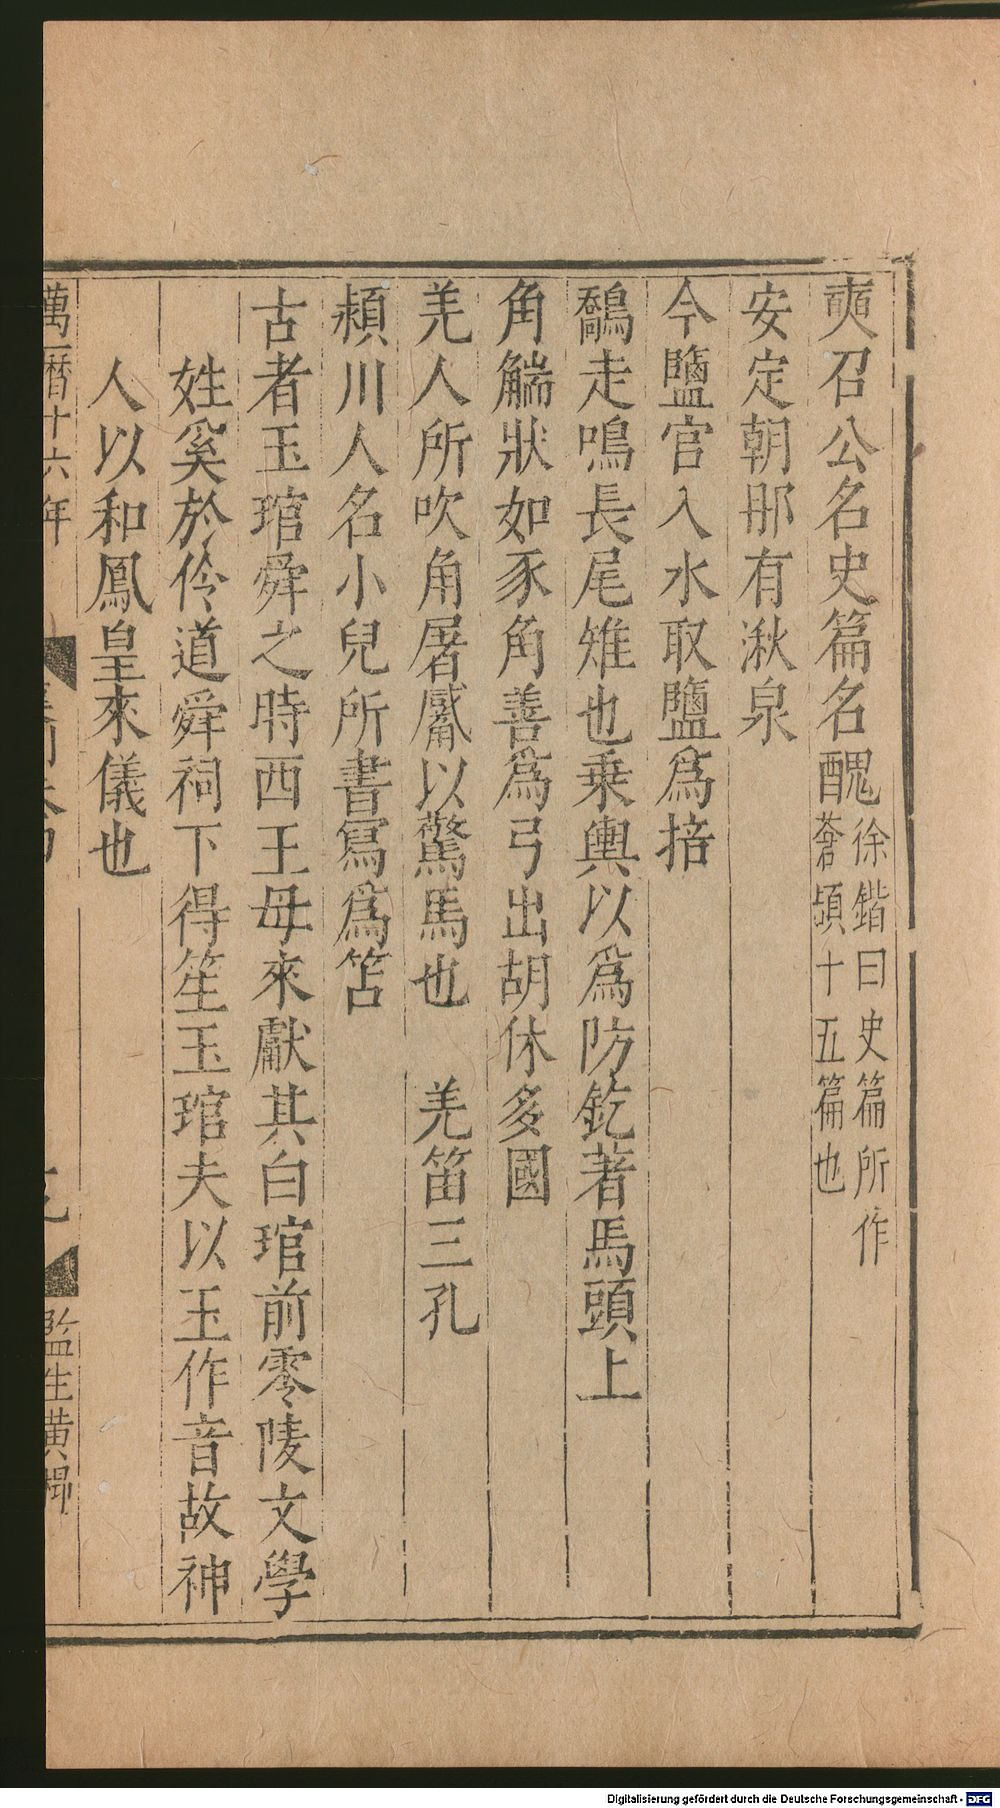 奭召公名史篇名醜徐鍇曰史篇所作蒼頡十五篇也
安定朝那有湫泉
今鹽官入水取鹽爲掊
鷮走鳴長尾雉也乗輿以爲防釳著馬頭上
角觿狀如豕角善爲弓出胡休多國
羌人所吹角屠觱以驚馬也　羌笛三孔
頴川人名小兒所書寫爲笘
古者玉琯舜之時西王母來獻其白琯前零陵文學
姓奚於伶道舜祠下得笙玉琯夫以玉作音故神
人以和鳳皇來儀也
萬曆十六年
監生黃
Digitalisierung gefördert durch die Deutsche Forschungsgemeinschaft - DFG